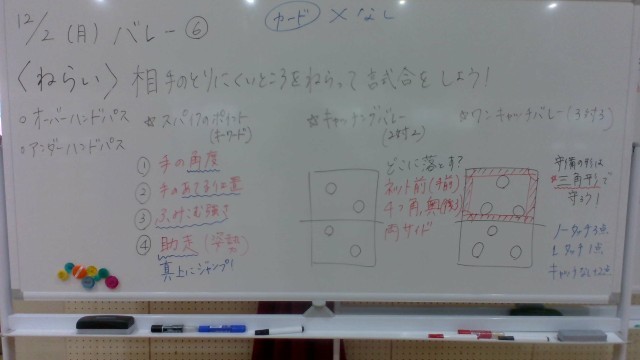 12/2(月) バレー⑥
カード ×なし
〈ねらい〉相手のとりにくいところをねらって試合をしよう!
○オーバーハンドパス
○アンダーハンドパス
☆スパイクのポイント
(キーワード)
① 手の角度
② 手のあたる位置
③ ふみこむ強さ
④ 助走(姿勢)
真上にジャンプ!
☆キャッチングバレー
(2対2)
どこに落とす?
ネット前(手前)
4つ角,奥(後ろ)
両サイド
☆ワンキャッチバレー(3対3)
守備の形は
三角形で
守ろう!
ノータッチ3点
1タッチ1点
キャッチなし+2点